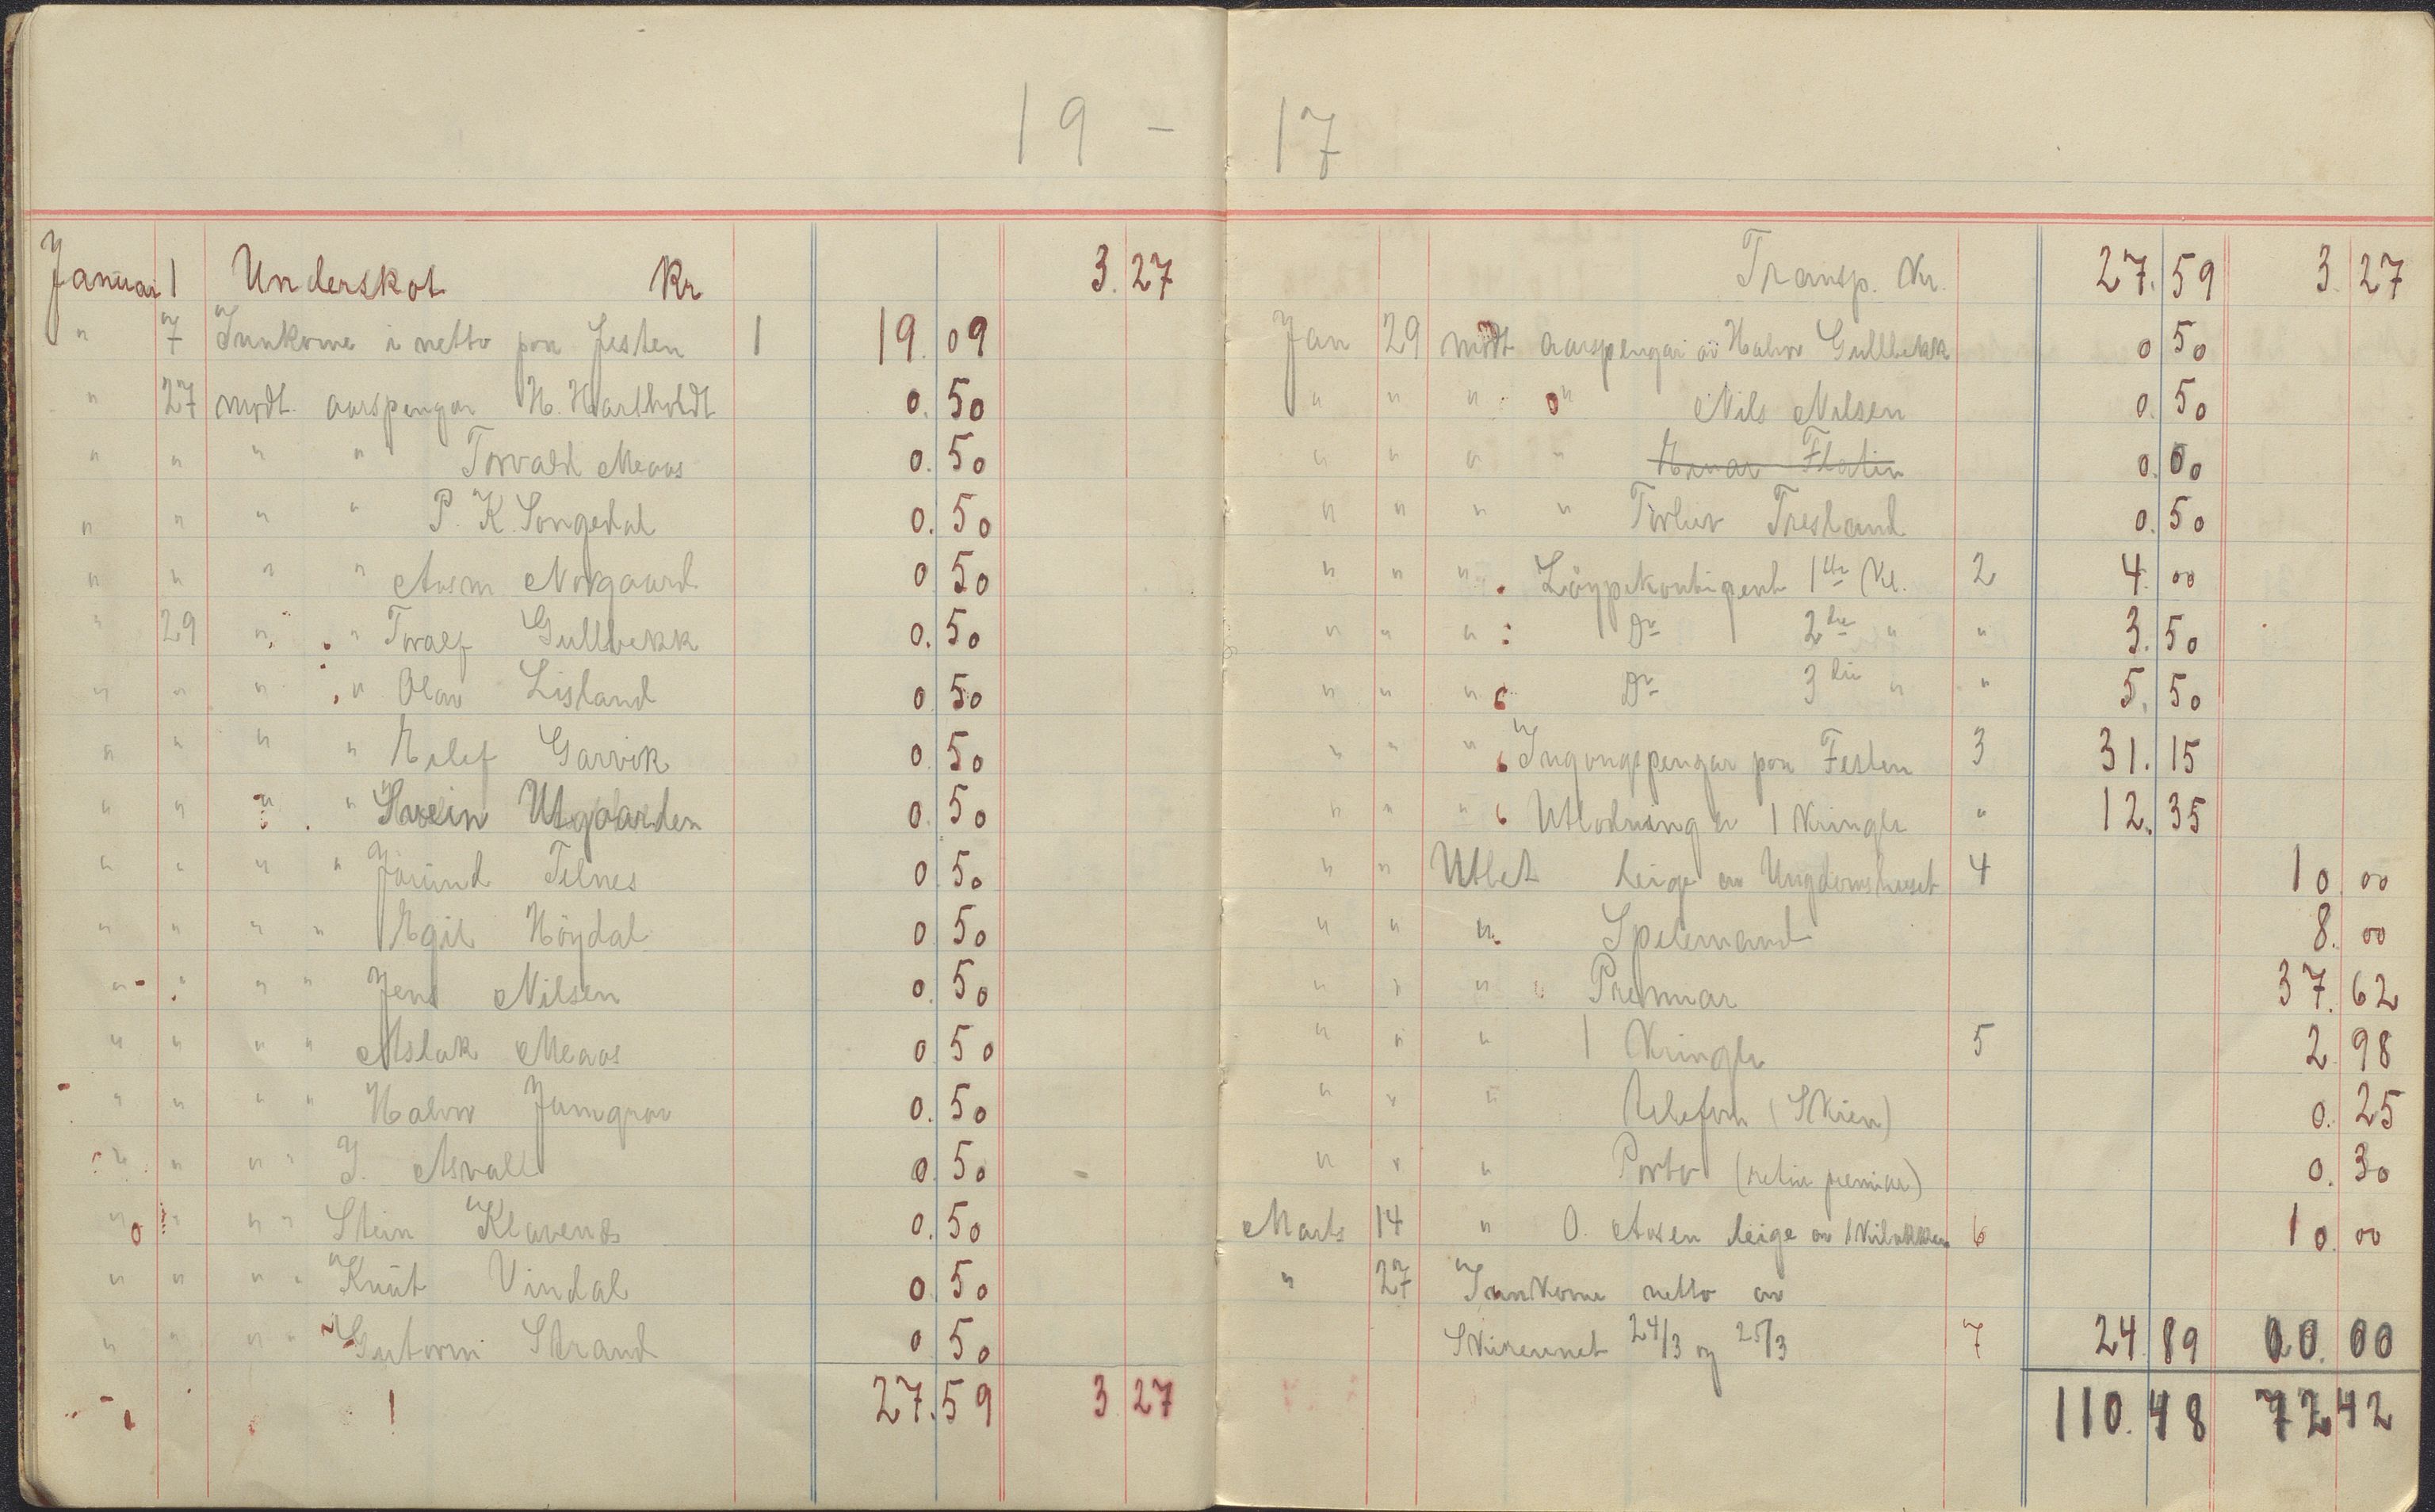 19 - 17
Januar 1 Underskot Kr 3.27
" 7 Innkome i netto paa festen 1 19.09
" 27 modt. aarspengar H. Hartholdt 0.50
" " " " Torvald Meaas 0.50
" " " " P. K. Songedal 0.50
" " " " Aasm Norgaard 0 50
" 29 " " Toralf Gullbekk 0.50
" " " " Olav Lisland 0 50
" " " " Eilef Garvik 0 50
" " " " Svein Utgaarden 0.50
" " " " Jörund Telnes 0 50
" " " " Egil Höydal 0 50
" " " " Jens Nilsen 0.50
" " " " Aslak Meaas 0 50
" " " " Halvor Jamgrav 0.50
" " " " J. Asvall 0 50
" " " " Stein Klavenes 0.50
" " " " Knut Vindal 0 50
" " " " Gutorm Strand 0 50
27.59 3 27
Transp. Kr. 27.59 3.27
Jan 29 modt aarspengar av Halvor Gullbekk 0 50
" " " " Nils Nilsen 0.50
" " " " Flatin 0.00
" " " " Torleiv Tresland 0.50
" " " Löypekontigent 1ste Kl. 2 4 00
" " " Do 2dre " " 3.50
" " " Do 3die " " 5.50
" " " Ingangspengar paa Festen 3 31.15
" " " Utlodning av 1 Kringle " 12.35
" " Utbet leige av Ungdomshuset 4 10.00
" " " Spelemand 8.00
" " " " Premiar 37.62
" " " 1 Kringle 5 2 98
" " " Telefon (Skien) 0.25
" " " Porto (retur premiar) 0.30
Marts 14 " O. Aasen leige av Skibakken 6 10.00
" 27 Innkome netto av
Skirennet 24/3 og 25/3 7 24.89 00.00
110.48 72 42